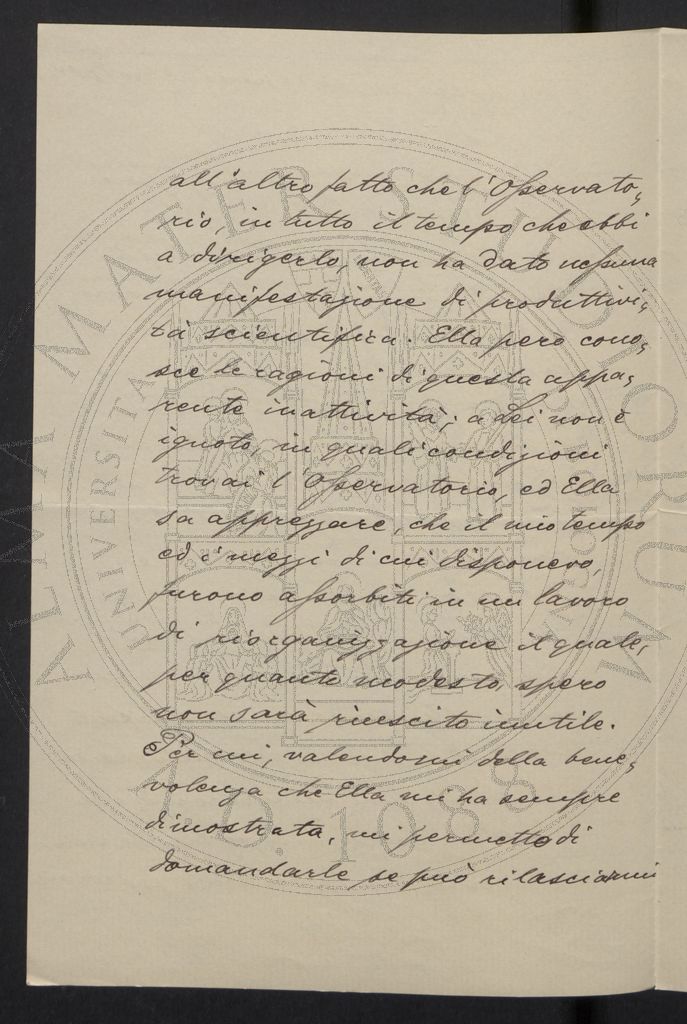 all'altro fatto che l'Osservato-
rio, in tutto il tempo che ebbi
a dirigerlo, non ha dato nessuna
manifestazione di produttivi-
tà scientifica. Ella però cono-
sce le ragioni di questa appa-
rente inattività; a Lei non è
ignoto, in quali condizioni
trovai l'Osservatorio, ed Ella
sa apprezzare, che il mio tempo
ed i mezzi di cui disponevo,
furono assorbiti in un lavoro
di riorganizzazione il quale,
per quanto modesto, spero
non sarà riescito inutile.
Per cui, valendomi della bene-
volenza che Ella mi ha sempre
dimostrata, mi permetto di
domandarle se può rilasciarmi
ALMA MATER STUDIORUM
UNIVERSITÀ
A.D. 1088